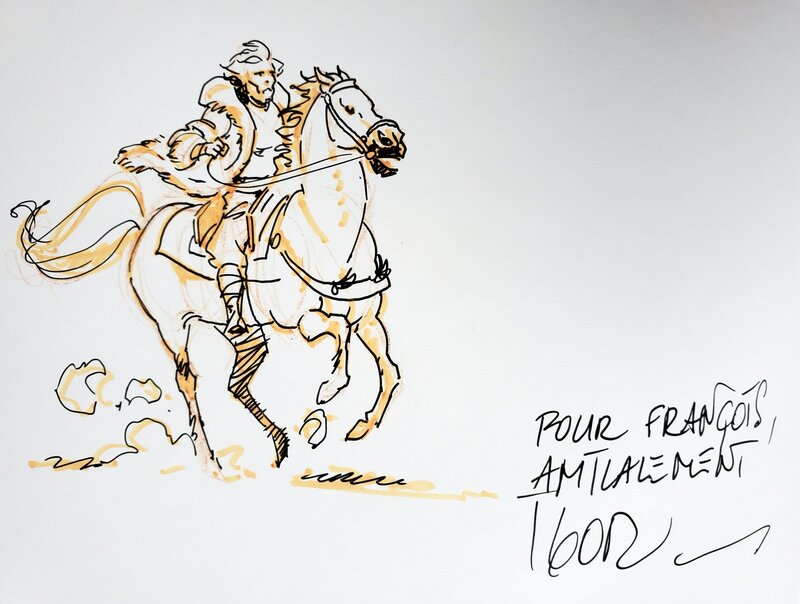 POUR FRANÇOIS,
AMICALEMENT
IGOR